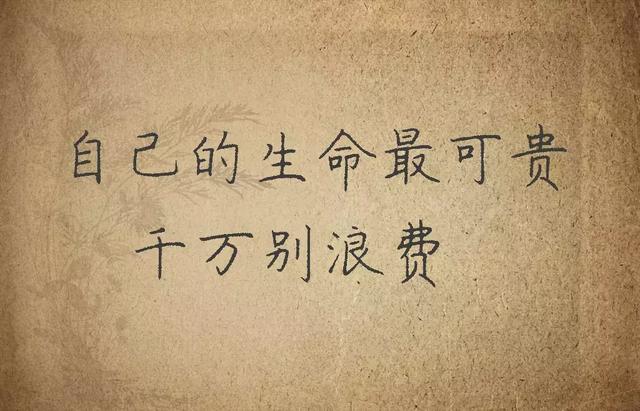 自己的生命最可贵
千万别浪费